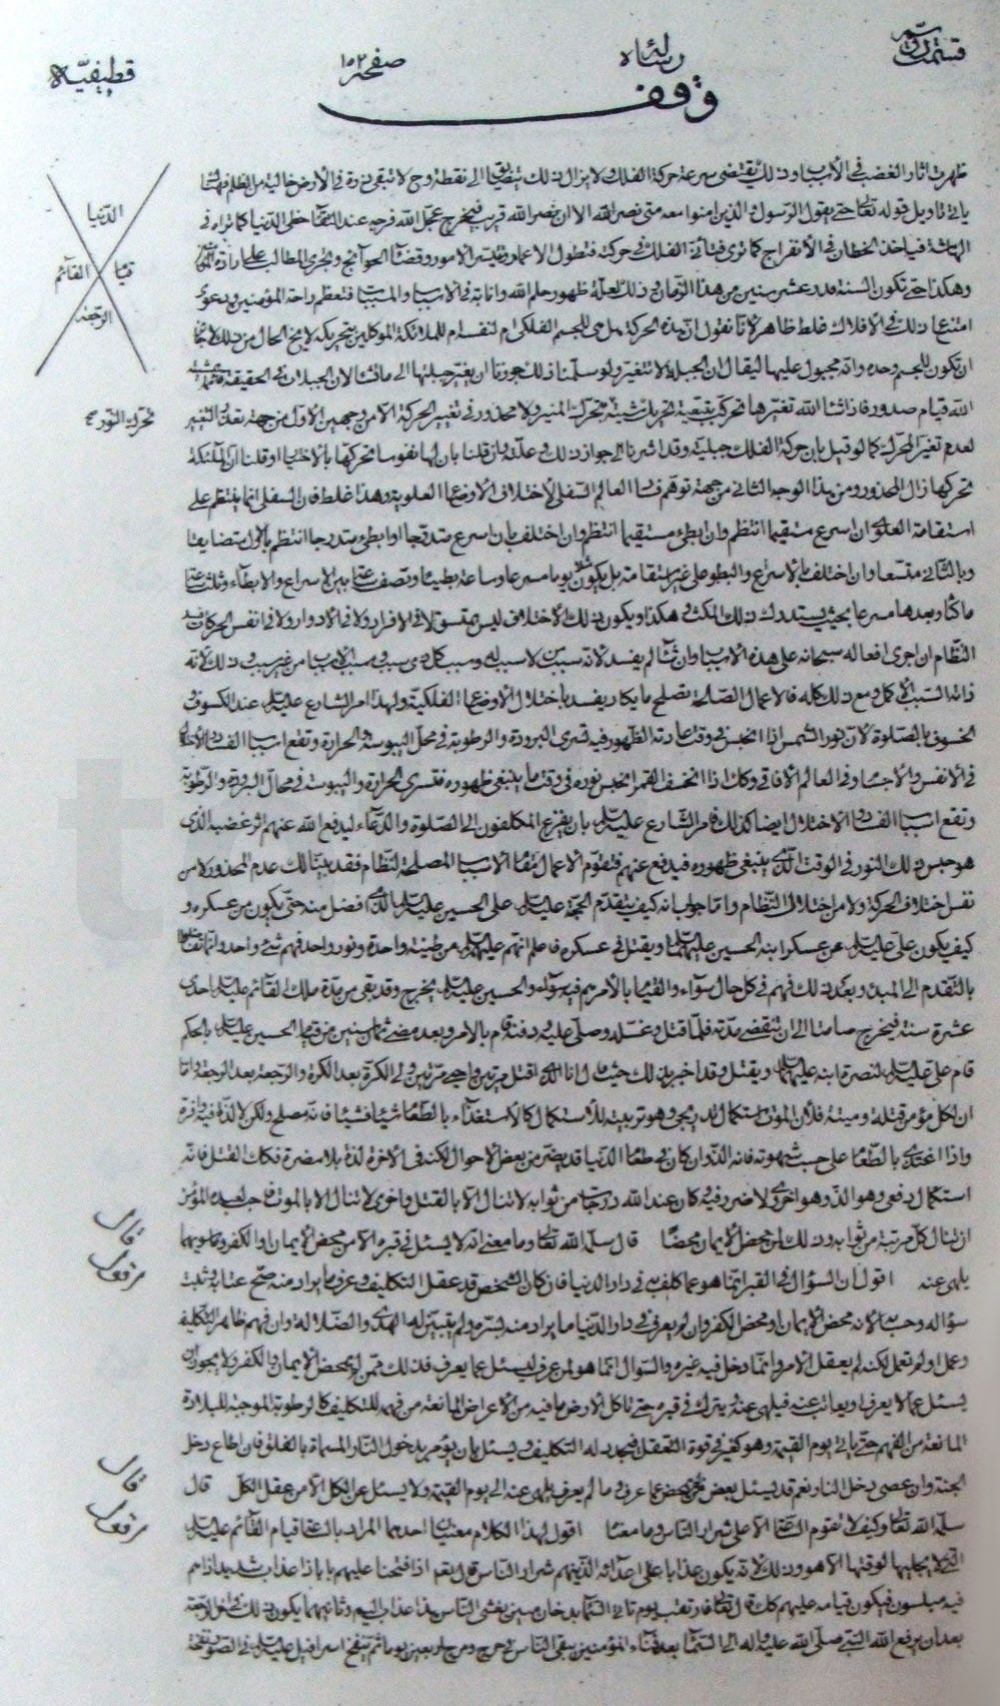 قسمت دوّم
رساله
صفحه ١٥٢
قطيفيّه
وقف
ظهرت اثار الغضب في الأسباب وذلك يقتضي سرعة حركة الفلك ولا يزال ذلك الى نقطة لا تبقى في الأرض خالية من الظلم
ياتي تاويل قوله تعالى حتى يقول الرسول والذين امنوا معه متى نصر الله الا ان نصر الله قريب فيخرج عجّل الله فرجه عند التقاء خطى الدنيا كما تراه في
الدنيا
قيام القائم
الرجعة
فياخذ الخطان في الانفراج كما ترى الفلك في حركته فتطول الاعمار وتتيسر الامور وقضاء الحوائج وتجري المطالب على
وهكذا حتى تكون السنة قدر عشر سنين من هذا الزمان وذلك لعلة ظهور حلم الله واناته في الاسباب والمسببات فتعظم راحة المؤمنين ودعوى
امتناع ذلك في الافلاك غلط ظاهر لأنا نقول ان هذه الحركة هل هي للجسم الفلكي ام لنفسه ام للملائكة الموكلين بتحريكه لا يخ الحال من ذلك
ان تكون للجسم وحده وانه مجبول عليها ليقال ان الجبلة لا تتغير ولو سلمنا ذلك جوزنا ان يغير جبلتها الى ما شاء لان الجبلات في الحقيقة
الله قيام صدور فاذا شاء الله تغيرها تحركت بتحريك المنير ولا محذور في تغيير الحركة الا من وجهين الاول من جهة
تحرك النور صح
لعدم تغير الحركة كما لو قيل بان حركة الفلك جبلية وقد اشرنا الى جواز ذلك وعلته وان قلنا بان لها نفوسا تحركها بالاختيار او قلنا ان الملئكة
تحركها زال المحذور ومن هذا الوجه الثاني من جهة توهم فساد العالم السفلي لاختلاف الاوضاع العلوية وهذا غلط فان السفلي انما ينتظم على
استقامة العلوي ان اسرع مستقيما انتظم وان ابطىء مستقيما انتظم وان اختلف بان اسرع متدرجا او ابطىء متدرجا انتظم بالاول متضايقا
وبالثاني متسعا وان اختلف بالاسراع والبطو على غير استقامة بل يكون يوما مسرعا وساعة بطيئا ونصف ساعة بين الاسراع والابطاء وثلث ساعة
ماكثا وبعدها مسرعا بحيث يستدرك ذلك المكث هكذا ويكون ذلك الاختلاف ليس بمتسق لا في الافراد ولا في الادوار ولا في نفس الحركات فسد
النظام ان اجرى افعاله سبحانه على هذه الاسباب وان شاء لم يفسد لانه سبب من لا سبب له وسبب كل ذي سبب ومسبب الاسباب من غير سبب وذلك لانه
ذاته السبب الاكمل ومع ذلك كله فالاعمال الصالحة تصلح ما يكاد يفسد باختلال الاوضاع الفلكية ولهذا امر الشارع عليه السلام عند الكسوف و
الخسوف بالصلوة لان نور الشمس اذا انحبس في وقت عادته الظهور فيه تسرى البرودة والرطوبة في محل اليبوسة والحرارة وتقع اسباب الفساد
في الانفس والاجساد في العالم الافاقي وكذا اذا انخسف القمر انحبس نوره في وقت ما ينبغي ظهوره فتسري الحرارة واليبوسة في محال البرودة والرطوبة
وتقع اسباب الفساد الاختلال ايضا كذلك فامر الشارع عليه السلام بان يفزع المكلفون الى الصلوة والدعاء ليدفع الله عنهم اثر غضبه الذي
هو حبس ذلك النور في الوقت الذي ينبغي ظهوره فيدفع عنهم فتقوم الاعمال مقام الاسباب المصلحة للنظام فقد بينا لك عدم المحذور لا من
نفس اختلاف الحركة ولا من اختلال النظام واما جواب انه كيف يتقدم الحجة عليه السلام على الحسين عليه السلام الذي افضل منه حتى يكون من عسكره و
كيف يكون علي عليه السلام من عسكر ابنه الحسين عليهما السلام ويقتل في عسكره فاعلم انهم عليهم السلام من طينة واحدة ونور واحد فهم شيء واحد وانما
بالتقدم الى المبدء وبعد ذلك فهم في كل حال سواء والقيام بالامر هم فيه سواء والحسين عليه السلام يخرج وقد بقي من مدة ملك القائم عليه السلام احدى
عشرة سنة فيخرج صامتا الى ان تنقضي مدته فلما قتل وغسله وصلى عليه ودفنه قام بالامر وبعد مضي ثمان سنين من قيام الحسين عليه السلام بالحكم
قام علي عليه السلام لنصرة ابنه عليهما السلام ويقتل وقد اخبر بذلك حيث قال انا الذي اقتل مرتين واحيى مرتين ولي الكرة بعد الكرة والرجعة بعد الرجعة واما
ان لكل مؤمن قتلة وميتة فلان الموت استكمال تدريجي وهو تربيته للاستكمال كالاستغذاء بالطعام شيئا فشيئا فانه مصلح ولكن
واذا اغتذى بالطعام على حسب شهوته فانه الذ وان كان في طعام الدنيا قد يضر من بعض الاحوال لكنه في الاخرة لذة بلا مضرة فكان القتل فانه
استكمال دفعي وهو الذ وهو اجرى ولا ضرر فيه وكان عند الله درجات من ثوابه لا تنال الا بالقتل واخرى لا تنال الا بالموت المؤمن
ان ينال كل مرتبة من ثوابه وذلك لمن محض الايمان محضا قال سلمه الله تعالى وما معنى انه لا يسئل في قبره الا من محض الايمان او الكفر
قال
مرفوعه
يلهى عنه اقول ان السؤال في القبر انما هو عما كلف به في دار الدنيا فان كان الشخص قد عقل التكليف وعرف ما يراد منه صح عتابه وثبت
سؤاله وحسابه لانه محض الايمان او محض الكفر وان لم يعرف في دار الدنيا ما يراد منه لستره ولم يتبين له الهدى والضلالة وان فهم ظاهر التكليف
وعمل او لم يعمل لكنه لم يعقل الامر وانما دخل فيه غيره والسؤال انما هو لمن عرف ليسئل عما يعرف فذلك ممن لم يمحض الايمان والكفر ولا يجوز ان
يسئل عما لا يعرف او يعاتب عنه فيلهى عنه يترك في قبره حتى تاكل الارض ما فيه من الاعراض المانعة من فهمه للتكليف كالرطوبة الموجبة للبلادة
المانعة من الفهم حتى ياتي يوم القيمة وهو كغيره في قوة التعقل فيجدد له التكليف ويسئل بان يؤمر بدخول النار المسماة بالفلق فان اطاع دخل
الجنة وان عصى دخل النار نعم قد يسئل بعض عن بعض عما عرف وما لم يعرف يلهى عنه الى يوم القيمة ولا يسئل عن الكل الا من عقل الكل قال
قال
مرفوعه
سلمه الله تعالى وكيف لا تقوم الساعة الا على شرار الناس وما معناه اقول لهذا الكلام معنيان احدهما المراد بالساعة قيام القائم عليه السلام
التي لا يجليها لوقتها الا هو وذلك لانه يكون عذابا على اعدائه الذين هم شرار الناس قال تعالى اذا فتحنا عليهم بابا ذا عذاب شديد اذا هم
فيه مبلسون فيكون قيامه عليهم كذلك قال تعالى فارتقب يوم تاتي السماء بدخان مبين يغشى الناس هذا عذاب اليم وثانيهما يكون ذلك في اخر الرجعة
بعد ان يرفع الله النبي صلى الله عليه واله الى السماء بعد فناء المؤمنين يبقى الناس في هرج ومرج اربعين يوما ثم ينفخ اسرافيل عليه السلام في الصور نفخة